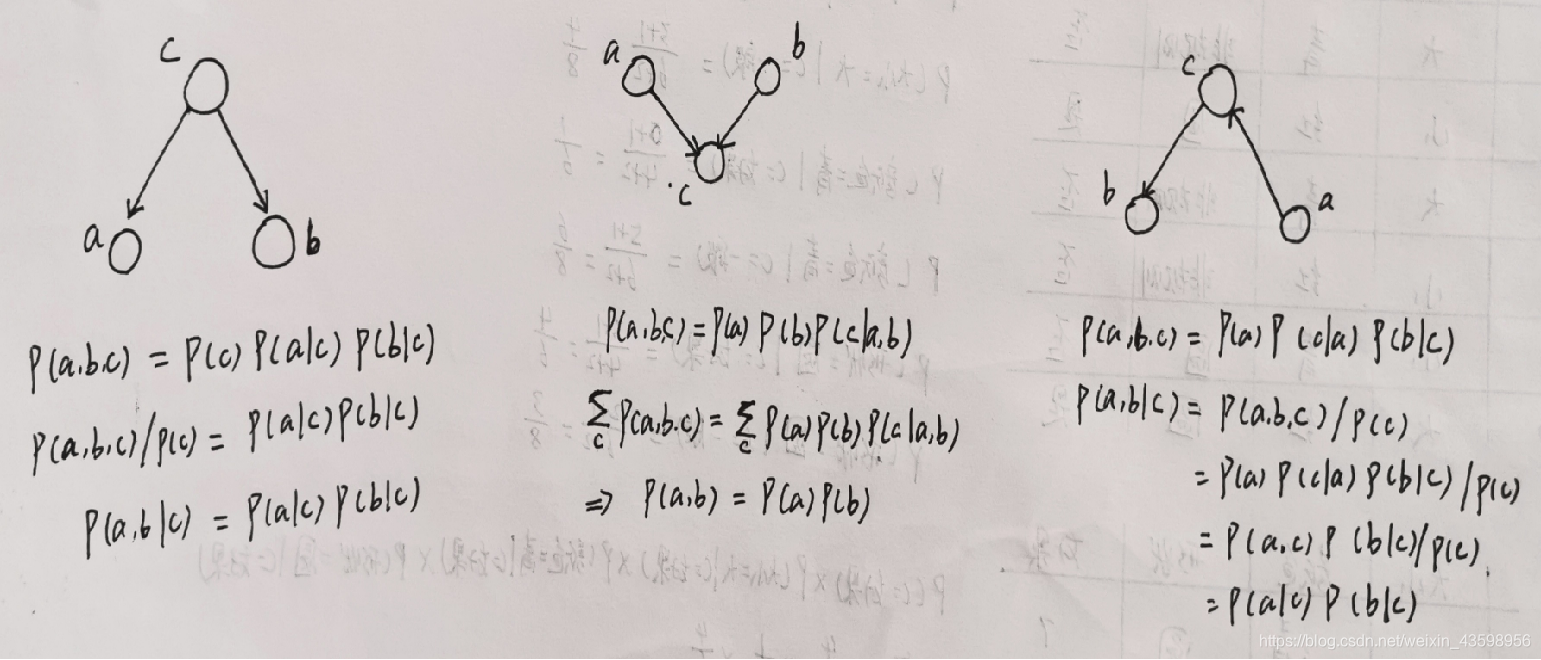 c
a
b
P(a,b,c) = P(c) P(a|c) P(b|c)
P(a,b,c)/P(c) = P(a|c)P(b|c)
P(a,b|c) = P(a|c) P(b|c)
a
b
c
P(a,b,c) = P(a) P(b) P(c|a,b)
∑c P(a,b,c) = ∑c P(a) P(b) P(c|a,b)
⇒ P(a,b) = P(a) P(b)
c
b
a
P(a,b,c) = P(a) P(c|a) P(b|c)
P(a,b|c) = P(a,b,c)/P(c)
= P(a) P(c|a) P(b|c)/P(c)
= P(a,c) P(b|c)/P(c)
= P(a|c) P(b|c)
https://blog.csdn.net/weixin_43598956